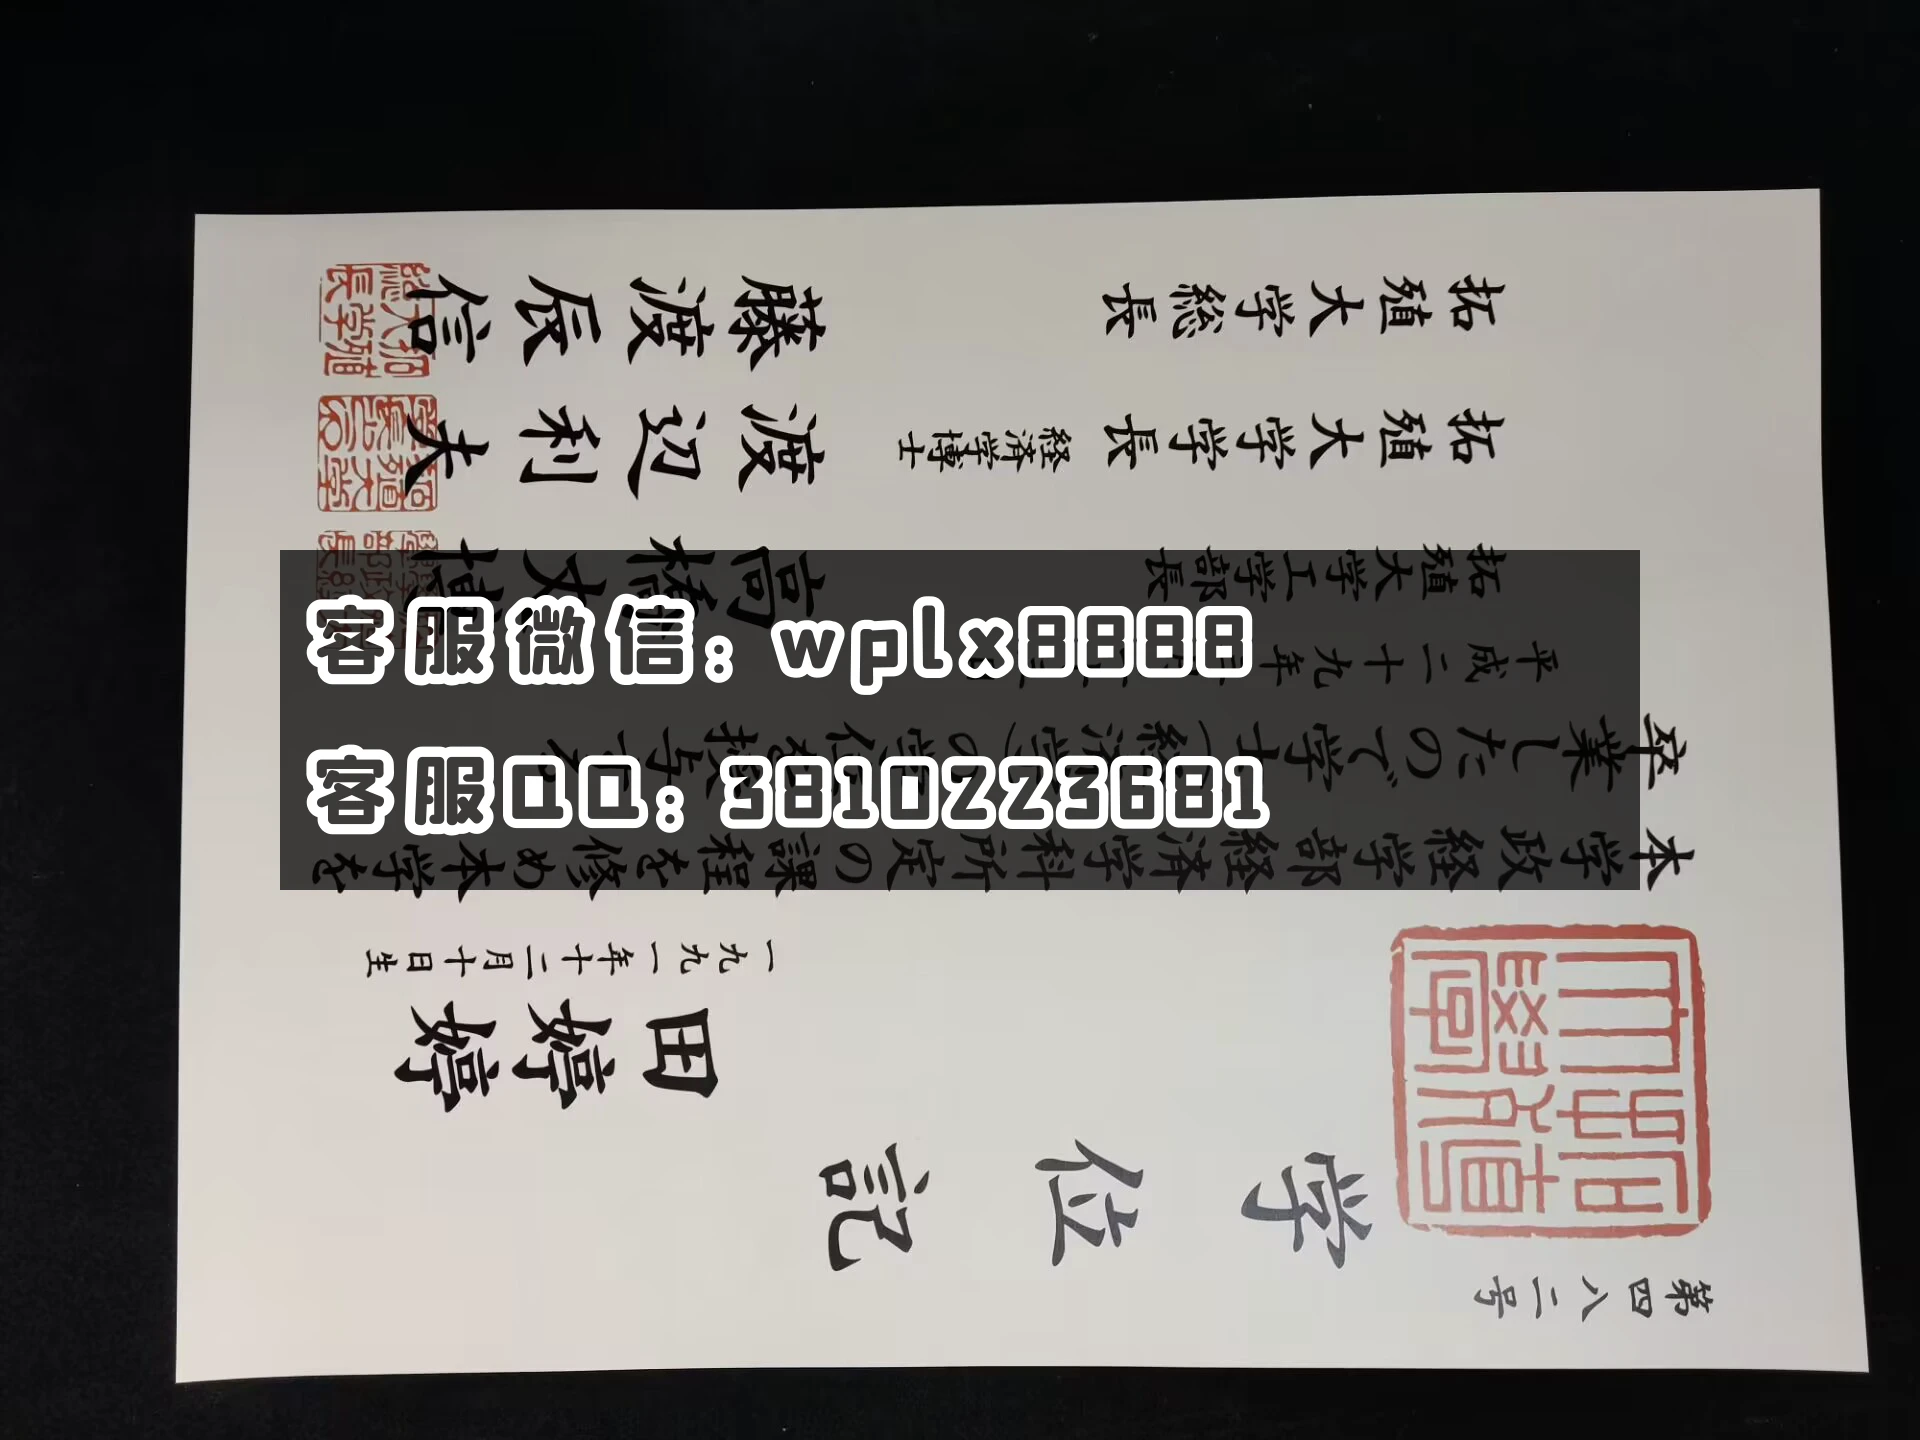 客服微信：wplx8888
客服QQ：3810223681
第四八二号
学位記
田婷婷
一九九一年十二月十日生
本学政経学部経済学科所定の課程を修め本学を
卒業したので学士（経済学）の学位を授与する
平成二十九年
拓殖大学工学部長 高橋
拓殖大学学長 経済学博士 渡辺利夫
拓殖大学総長 藤渡辰信